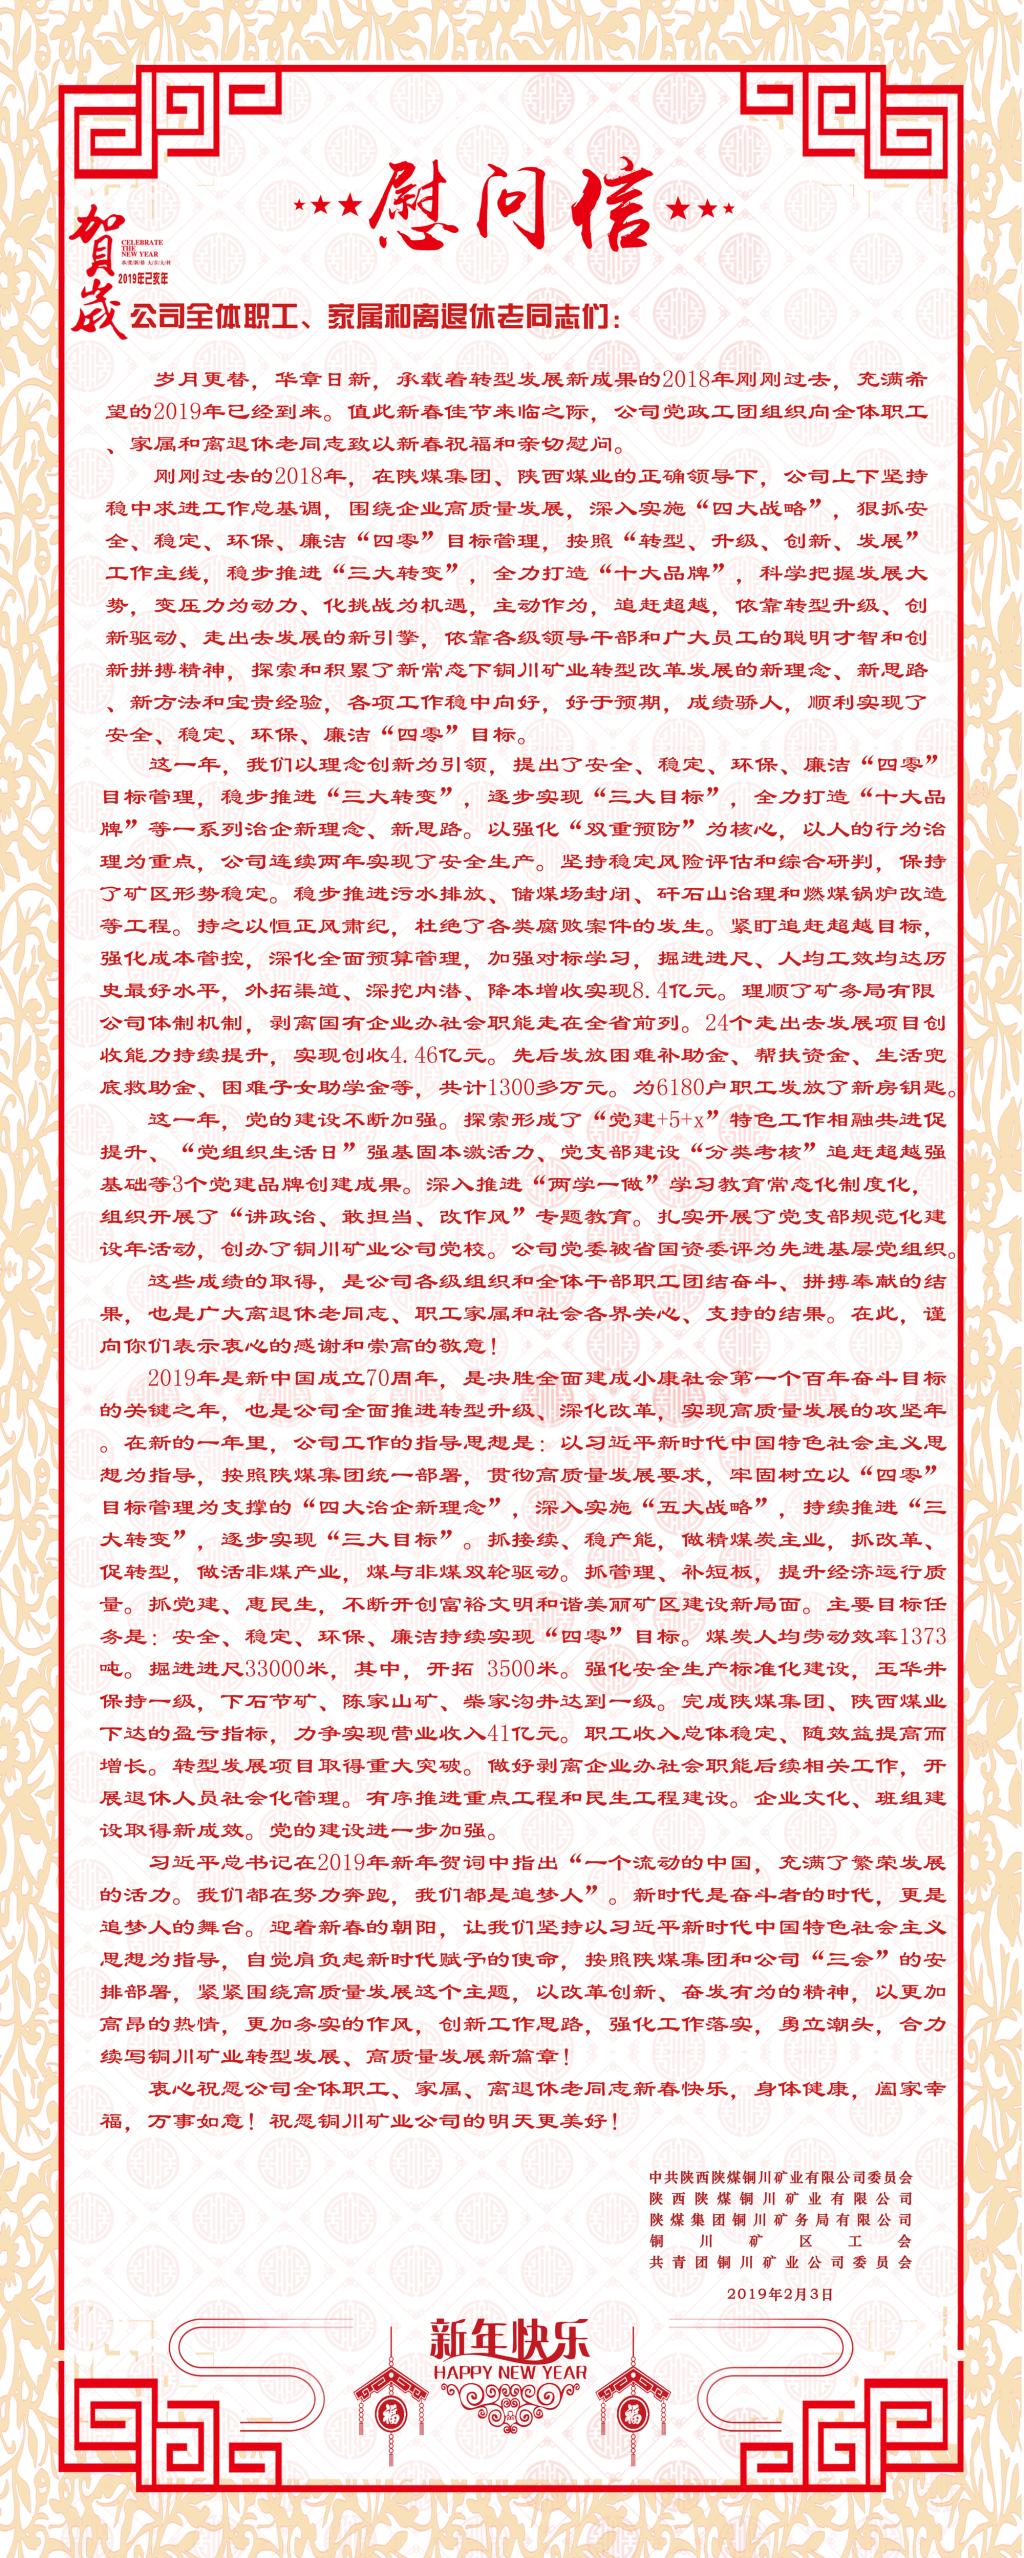 慰问信
贺岁
CELEBRATE
THE
NEW YEAR
2019年己亥年
公司全体职工、家属和离退休老同志们：
岁月更替，华章日新，承载着转型发展新成果的2018年刚刚过去，充满希
望的2019年已经到来。值此新春佳节来临之际，公司党政工团组织向全体职工
、家属和离退休老同志致以新春祝福和亲切慰问。
刚刚过去的2018年，在陕煤集团、陕西煤业的正确领导下，公司上下坚持
稳中求进工作总基调，围绕企业高质量发展，深入实施“四大战略”，狠抓安
全、稳定、环保、廉洁“四零”目标管理，按照“转型、升级、创新、发展”
工作主线，稳步推进“三大转变”，全力打造“十大品牌”，科学把握发展大
势，变压力为动力、化挑战为机遇，主动作为，追赶超越，依靠转型升级、创
新驱动、走出去发展的新引擎，依靠各级领导干部和广大员工的聪明才智和创
新拼搏精神，探索和积累了新常态下铜川矿业转型改革发展的新理念、新思路
、新方法和宝贵经验，各项工作稳中向好，好于预期，成绩骄人，顺利实现了
安全、稳定、环保、廉洁“四零”目标。
这一年，我们以理念创新为引领，提出了安全、稳定、环保、廉洁“四零”
目标管理，稳步推进“三大转变”，逐步实现“三大目标”，全力打造“十大品
牌”等一系列治企新理念、新思路。以强化“双重预防”为核心，以人的行为治
理为重点，公司连续两年实现了安全生产。坚持稳定风险评估和综合研判，保持
了矿区形势稳定。稳步推进污水排放、储煤场封闭、矸石山治理和燃煤锅炉改造
等工程。持之以恒正风肃纪，杜绝了各类腐败案件的发生。紧盯追赶超越目标，
强化成本管控，深化全面预算管理，加强对标学习，掘进进尺、人均工效均达历
史最好水平，外拓渠道、深挖内潜、降本增收实现8.4亿元。理顺了矿务局有限
公司体制机制，剥离国有企业办社会职能走在全省前列。24个走出去发展项目创
收能力持续提升，实现创收4.46亿元。先后发放困难补助金、帮扶资金、生活兜
底救助金、困难子女助学金等，共计1300多万元。为6180户职工发放了新房钥匙。
这一年，党的建设不断加强。探索形成了“党建+5+x”特色工作相融共进促
提升、“党组织生活日”强基固本激活力、党支部建设“分类考核”追赶超越强
基础等3个党建品牌创建成果。深入推进“两学一做”学习教育常态化制度化，
组织开展了“讲政治、敢担当、改作风”专题教育。扎实开展了党支部规范化建
设年活动，创办了铜川矿业公司党校。公司党委被省国资委评为先进基层党组织。
这些成绩的取得，是公司各级组织和全体干部职工团结奋斗、拼搏奉献的结
果，也是广大离退休老同志、职工家属和社会各界关心、支持的结果。在此，谨
向你们表示衷心的感谢和崇高的敬意！
2019年是新中国成立70周年，是决胜全面建成小康社会第一个百年奋斗目标
的关键之年，也是公司全面推进转型升级、深化改革，实现高质量发展的攻坚年
。在新的一年里，公司工作的指导思想是：以习近平新时代中国特色社会主义思
想为指导，按照陕煤集团统一部署，贯彻高质量发展要求，牢固树立以“四零”
目标管理为支撑的“四大治企新理念”，深入实施“五大战略”，持续推进“三
大转变”，逐步实现“三大目标”。抓接续、稳产能，做精煤炭主业，抓改革、
促转型，做活非煤产业，煤与非煤双轮驱动。抓管理、补短板，提升经济运行质
量。抓党建、惠民生，不断开创富裕文明和谐美丽矿区建设新局面。主要目标任
务是：安全、稳定、环保、廉洁持续实现“四零”目标。煤炭人均劳动效率1373
吨。掘进进尺33000米，其中，开拓 3500米。强化安全生产标准化建设，玉华井
保持一级，下石节矿、陈家山矿、柴家沟井达到一级。完成陕煤集团、陕西煤业
下达的盈亏指标，力争实现营业收入41亿元。职工收入总体稳定、随效益提高而
增长。转型发展项目取得重大突破。做好剥离企业办社会职能后续相关工作，开
展退休人员社会化管理。有序推进重点工程和民生工程建设。企业文化、班组建
设取得新成效。党的建设进一步加强。
习近平总书记在2019年新年贺词中指出“一个流动的中国，充满了繁荣发展
的活力。我们都在努力奔跑，我们都是追梦人”。新时代是奋斗者的时代，更是
追梦人的舞台。迎着新春的朝阳，让我们坚持以习近平新时代中国特色社会主义
思想为指导，自觉肩负起新时代赋予的使命，按照陕煤集团和公司“三会”的安
排部署，紧紧围绕高质量发展这个主题，以改革创新、奋发有为的精神，以更加
高昂的热情，更加务实的作风，创新工作思路，强化工作落实，勇立潮头，合力
续写铜川矿业转型发展、高质量发展新篇章！
衷心祝愿公司全体职工、家属、离退休老同志新春快乐，身体健康，阖家幸
福，万事如意！祝愿铜川矿业公司的明天更美好！
中共陕西陕煤铜川矿业有限公司委员会
陕西陕煤铜川矿业有限公司
陕煤集团铜川矿务局有限公司
铜川矿区工会
共青团铜川矿业公司委员会
2019年2月3日
新年快乐
HAPPY NEW YEAR
福
福